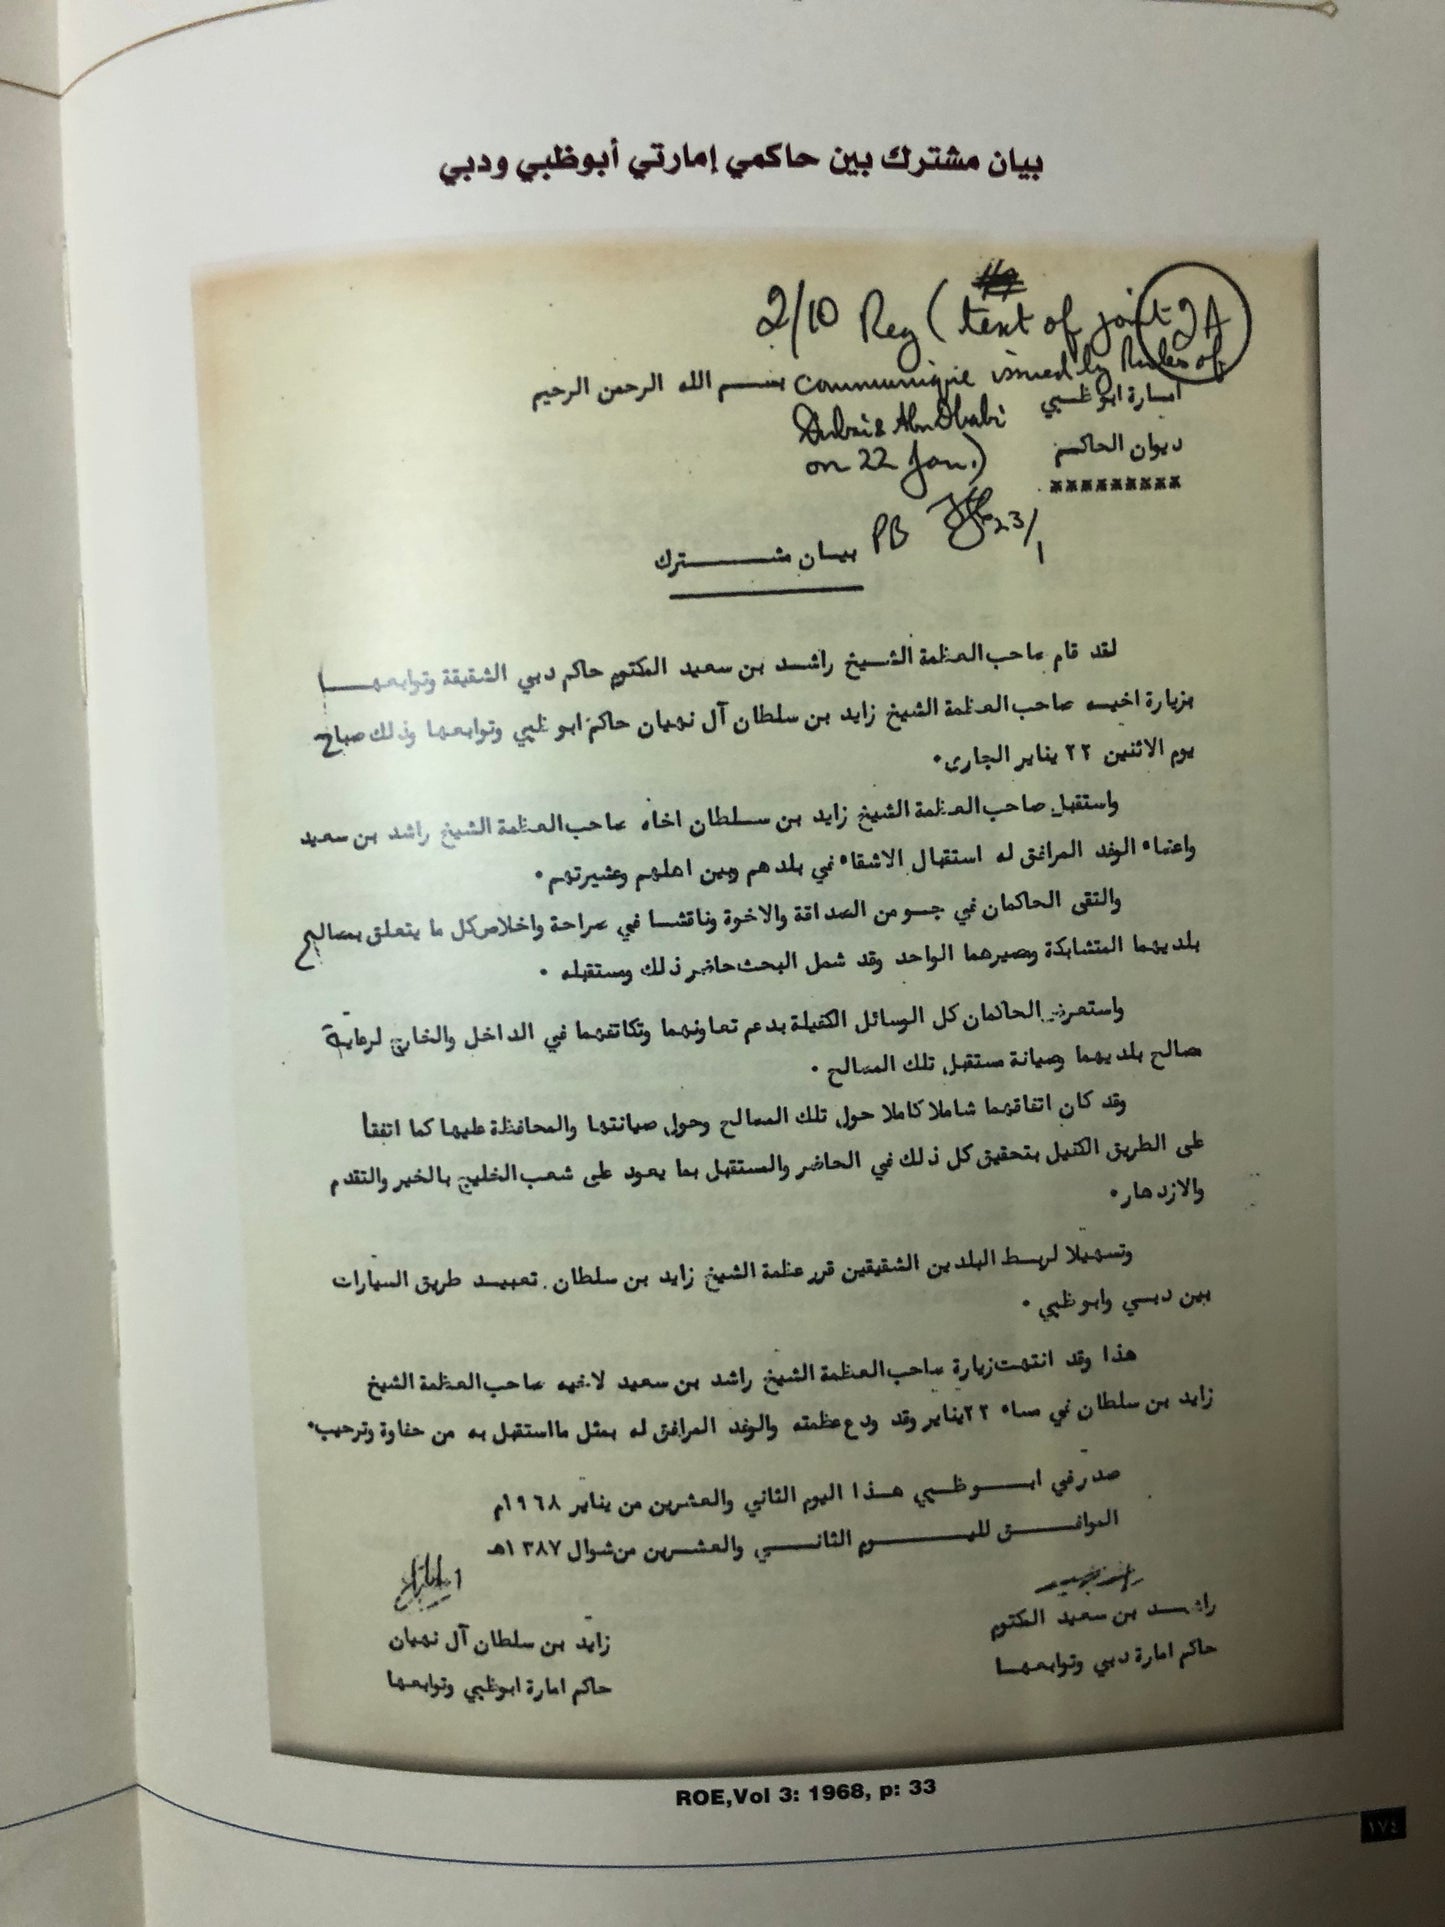 بيان مشترك بين حاكمي إمارتي أبوظبي ودبي
2/10 Reg (text of joint 2A
communique issued by Rulers of
Dubai & Abu Dhabi
on 22 Jan.)
PB 23/1
بســـم الله الرحمن الرحيم
امارة ابوظــبي
ديوان الحاكــم
*********
بيــان مشــــــترك
لقد قام صاحب العظمة الشـيخ راشــد بــن سعيد المكتوم حاكم دبي الشقيقة وتوابعهـــــا
بزيارة اخيــه صاحب العظمة الشيخ زايد بن سلطان آل نهيان حاكم ابو ظبي وتوابعها وذلك صباح
يوم الاثنين ٢٢ يناير الجارى٠
واستقبل صاحب العظمة الشيخ زايد بن ســلطان اخاه صاحب العظمة الشيخ راشد بن سعيد
واعضاء الوفد المرافق له استقبال الاشقاء في بلدهم وبين اهلهم وعشيرتهم ٠
والتقى الحاكمان في جــو من الصداقة والاخوة وناقشــا في صراحة واخلاص كل ما يتعلق بمصالح
بلديهما المتشابكة ومصيرهما الواحد وقد شمل البحث حاضر ذلك ومستقبله ٠
واستعرض الحاكمان كل الوسائل الكفيلة بدعم تعاونهما وتكاتفهما في الداخل والخارج لرعاية
مصالح بلديهما وصيانة مستقبل تلك المصالح ٠
وقد كان اتفاقهما شاملا كاملا حول تلك المصالح وحول صيانتها والمحافظة عليها كما اتفقا
على الطريق الكفيل بتحقيق كل ذلك في الحاضر والمستقبل بما يعود على شعب الخليج بالخير والتقدم
والازدهار٠
وتسهيلا لربــط البلدين الشقيقين قرر عظمة الشيخ زايد بن سلطان تعبيــد طريق السيارات
بين دبــي وابو ظبي ٠
هذا وقد انتهت زيارة صاحب العظمة الشيخ راشد بن سعيد لاخيه صاحب العظمة الشيخ
زايد بن سلطان في مساء ٢٢ يناير وقد ودع عظمته والوفد المرافق له بمثل ما استقبل به من حفاوة وترحيب٠
صدر في ابــــو ظــبي هــذا اليوم الثاني والعشرين من يناير ١٩٦٨م
الموافـــــق لليــــــــوم الثانــــي والعشــرين من شوال ١٣٨٧هـ
راشــــد بن سعيد المكتوم
حاكم امارة دبي وتوابعهــا
زايد بن سلطان آل نهيان
حاكم امارة ابوظبي وتوابعها
ROE,Vol 3: 1968, p: 33
١٧٤